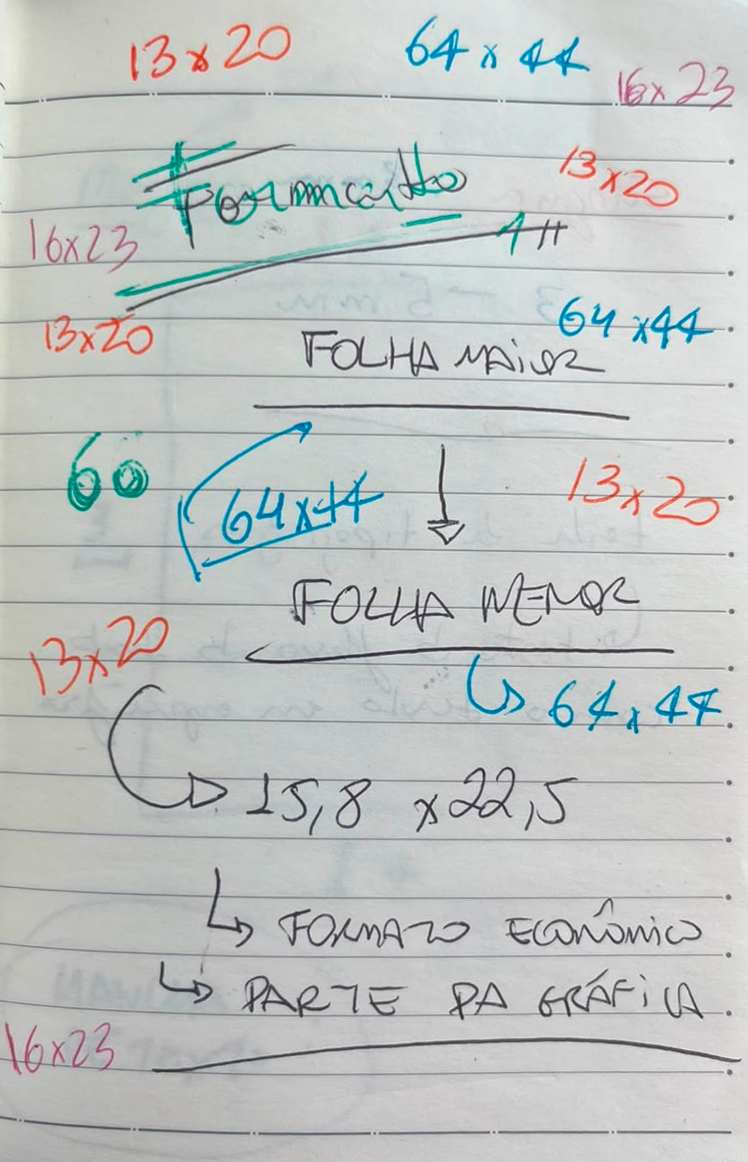 13x20 64x44
16x23
Formato
13x20
16x23
64x44
13x20
FOLHA MAIOR
60
64x44
13x20
FOLHA MENOR
13x20
64x44
15,8 x22,5
FORMATO ECONÔMICO
PARTE DA GRÁFICA
16x23